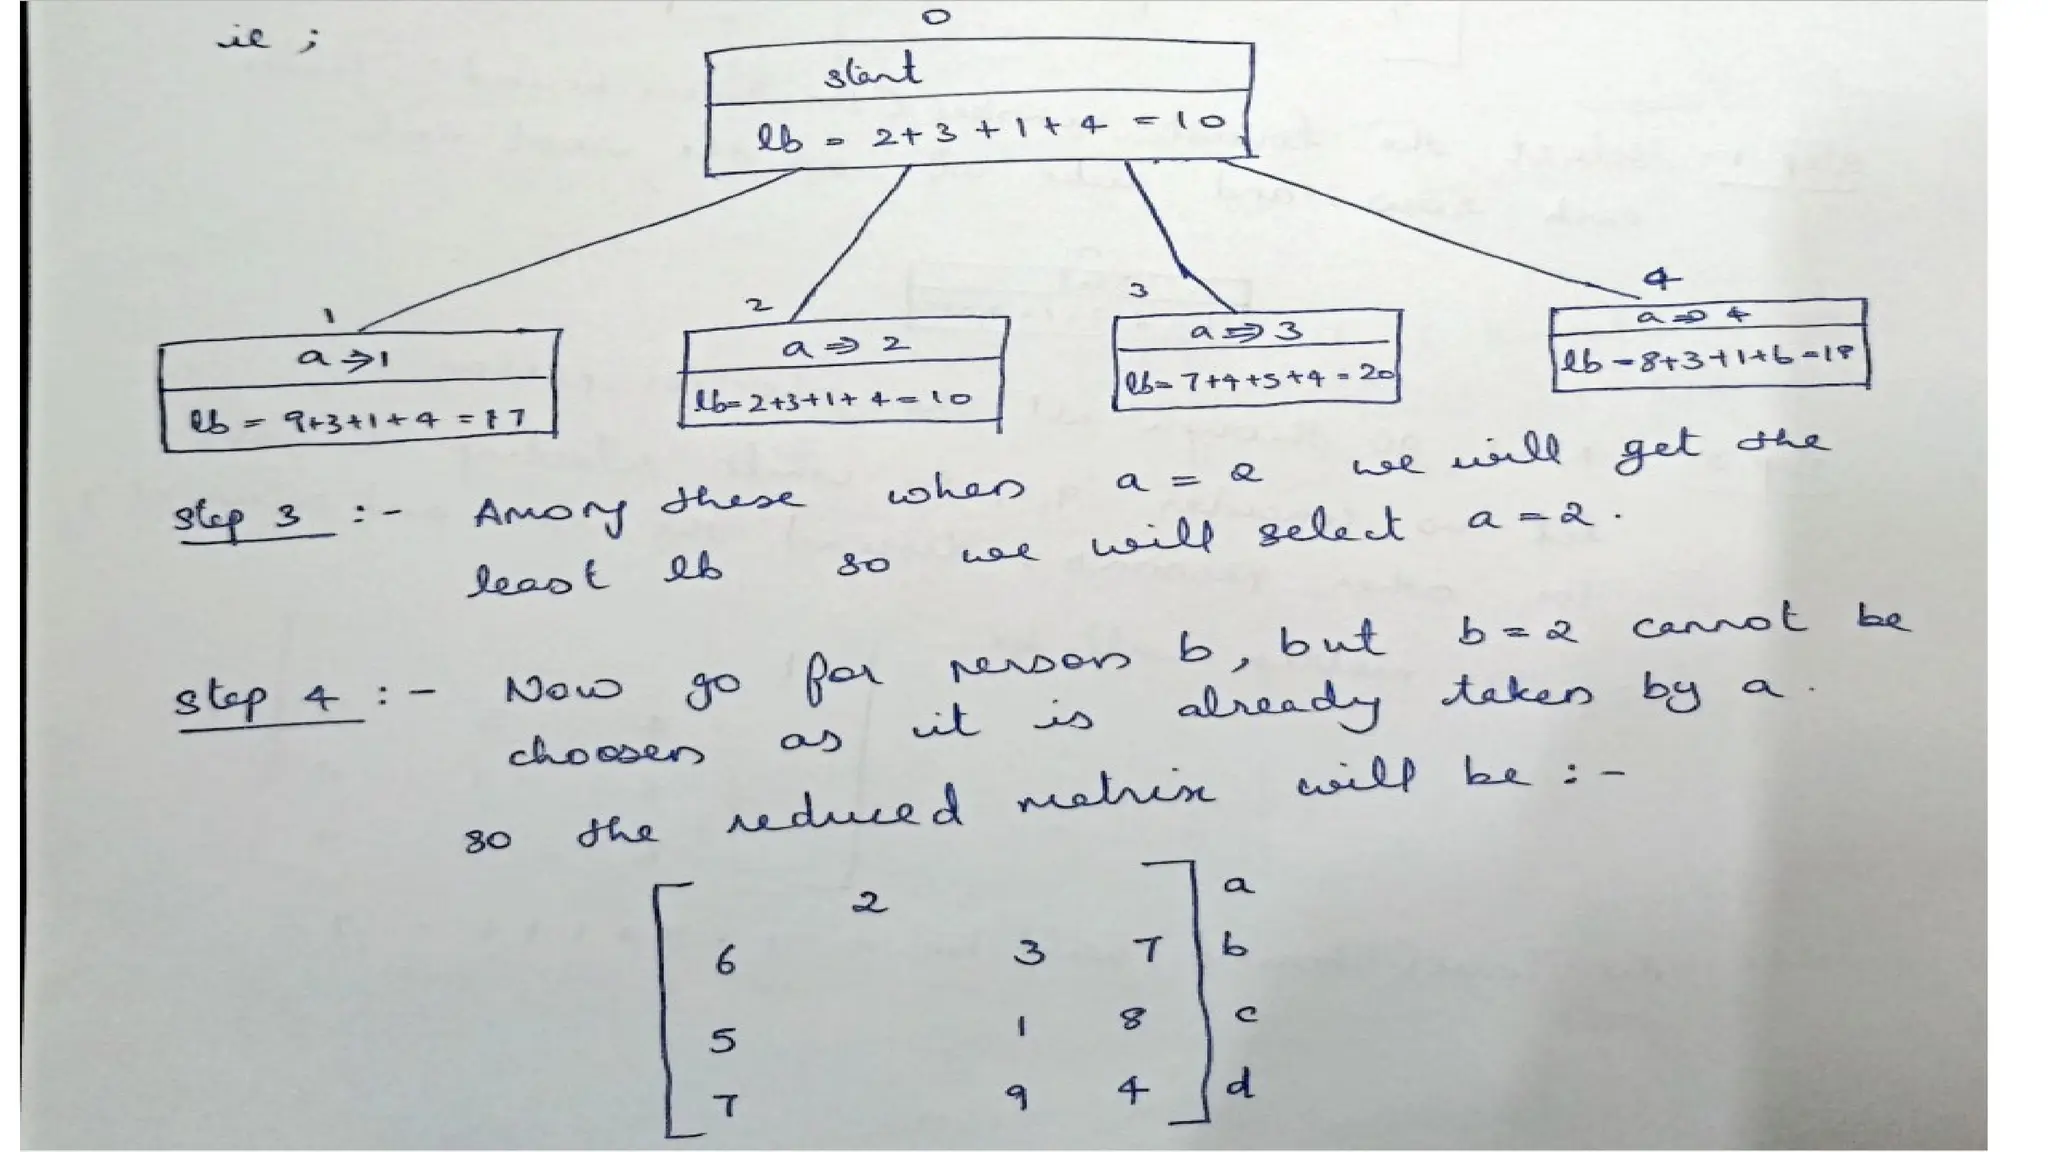 ie ;
0
start
lb = 2+3+1+4 = 10
1
2
3
4
a ⇒ 1
a ⇒ 2
a ⇒ 3
a ⇒ 4
lb = 9+3+1+4 = 17
lb = 2+3+1+4 = 10
lb = 7+4+5+4 = 20
lb = 8+3+1+6 = 18
step 3 :- Among these when a = 2 we will get the
least lb so we will select a = 2.
step 4 :- Now go for person b, but b = 2 cannot be
choosen as it is already taken by a.
so the reduced matrix will be :-
2 a
6 3 7 b
5 1 8 c
7 9 4 d